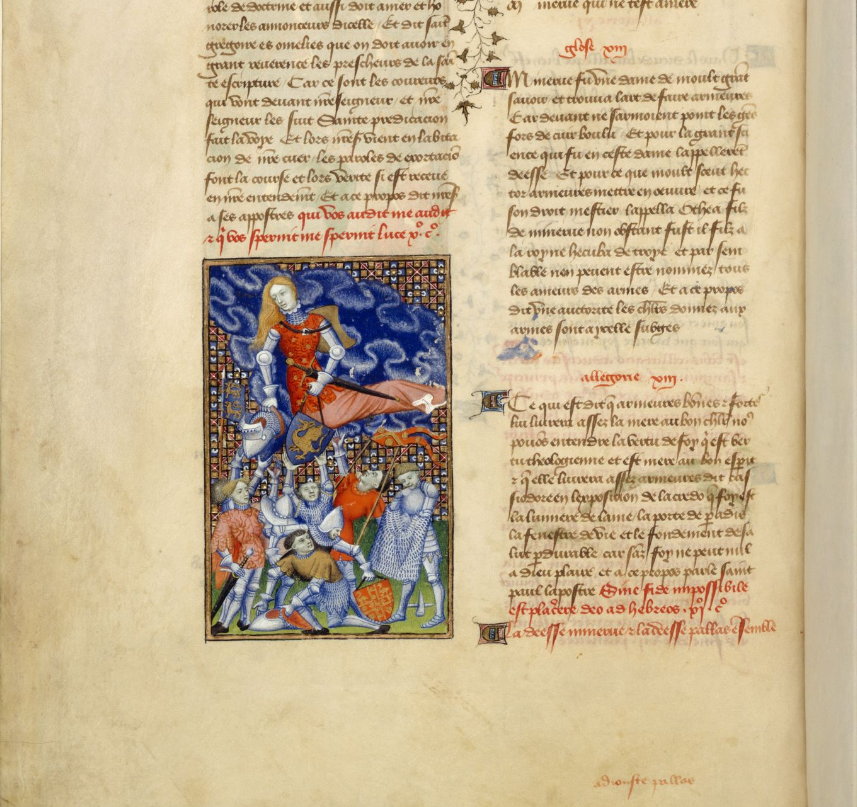 role de doctrine et aussi doit amer et ho
norer les annonceurs dicelle Et dit saīt
gregoire es omelies que on doit avoir en
grant reuerence les prescheurs de la sai
te escripture Car ce sont les coureurs
qui vont deuant nr̄eseigneur et nr̄e
seigneur les suit Sainte predicacion
fait la voye Et lors nr̄es̄ vient en labita
cion de nr̄e cuer les paroles de exortacio
font la course et lors verite si est receue
en nr̄e entendemt̄ Et a ce propos dit nr̄es̄
a ses appostres qui vos audit me audit
⁊ q̄ vos spernit me spernit luce xº. cº.
M merue qui ne test amere
glose xiii
Minerue fu vne dame de moult grāt
sauoir et trouua lart de faire armeures
Car deuant ne sarmoient point les gēs
fors de cuir boulu Et pour la grant sci
ence qui fu en ceste dame lappellerēt
deesse Et pour ce que moult sceut hec
tor armeures mettre en oeuure et ce fu
son droit mestier lappella Othea filz
de minerue non obstant fust il filz a
la royne hecuba de troye et par sem
blable nen peuent estre nommez tous
les ameurs des armes Et a ce propos
dit vne auctorite les chl̄rs donnez aux
armes sont a ycelle subges
allegorie xiii.
Ce qui est dit q̄ armeures bōnes ⁊ fortes
lui liurera assez la mere au bon chl̄r no⁹
pouōs entendre la vertu de foy q̄ est ver
tu theologienne et est mere au bon esp̄it
⁊ q̄ elle liurera assez armeures dit cas
siodore en lexposicion de la credo q̄ foy est
la lumiere de lame la porte de p̄adis
la fenestre de vie et le fondement de sa
lut p̄durable car sās foy ne peut nul
a dieu plaire et a ce propos parle saint
paul lapostre Sine fide impossibile
est placere deo ad hebreos. xjº. cº
La deesse minerue ⁊ la deesse pallas ēsemble
adiouste pallas